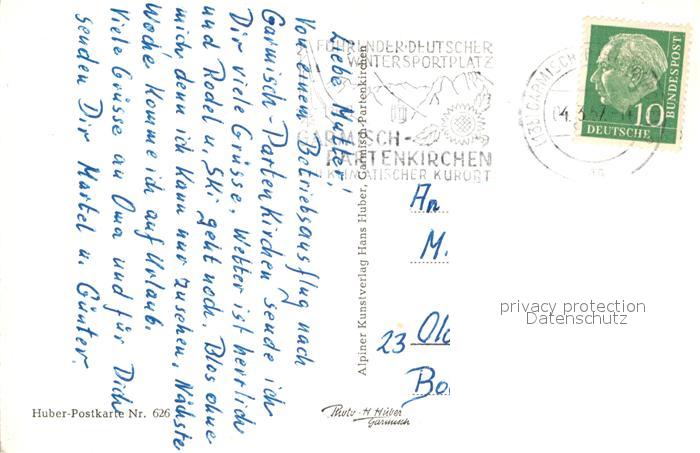 Liebe Mutter!
Von einem Betriebsausflug nach
Garmisch-Partenkirchen sende ich
Dir viele Grüsse. Wetter ist herrlich
und Rodel u. Ski geht noch. Blos ohne
mich denn ich kann nur zusehen. Nächste
Woche komme ich auf Urlaub.
Viele Grüsse an Oma und für Dich
senden Dir Martel u. Günter.
Huber-Postkarte Nr. 626
Alpiner Kunstverlag Hans Huber, Garmisch-Partenkirchen
Photo-H Huber
Garmisch
FÜHRENDER DEUTSCHER
WINTERSPORTPLATZ
GARMISCH-
PARTENKIRCHEN
KLIMATISCHER KURORT
GARMISCH
10
DEUTSCHE
BUNDESPOST
An
M.
23
privacy protection
Datenschutz